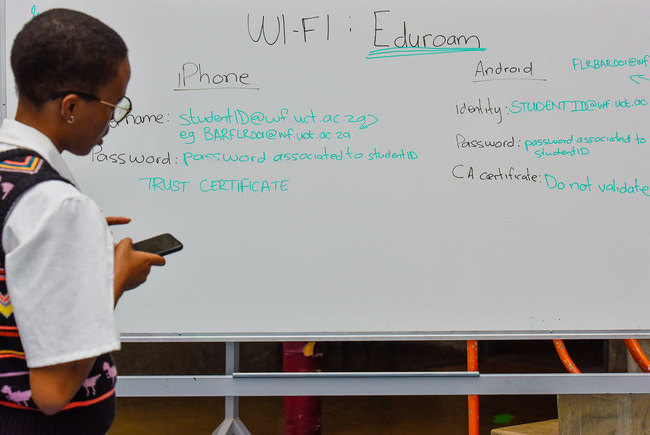 WI-FI: Eduroam
iPhone
name: studentID@wf.uct.ac.za
eg BARFLR001@wf.uct.ac.za
Password: password associated to studentID
TRUST CERTIFICATE
Android
FLRBAR001@wf
Identity: STUDENTID@wf.uct.ac
Password: password associated to
studentID
CA certificate: Do not validate